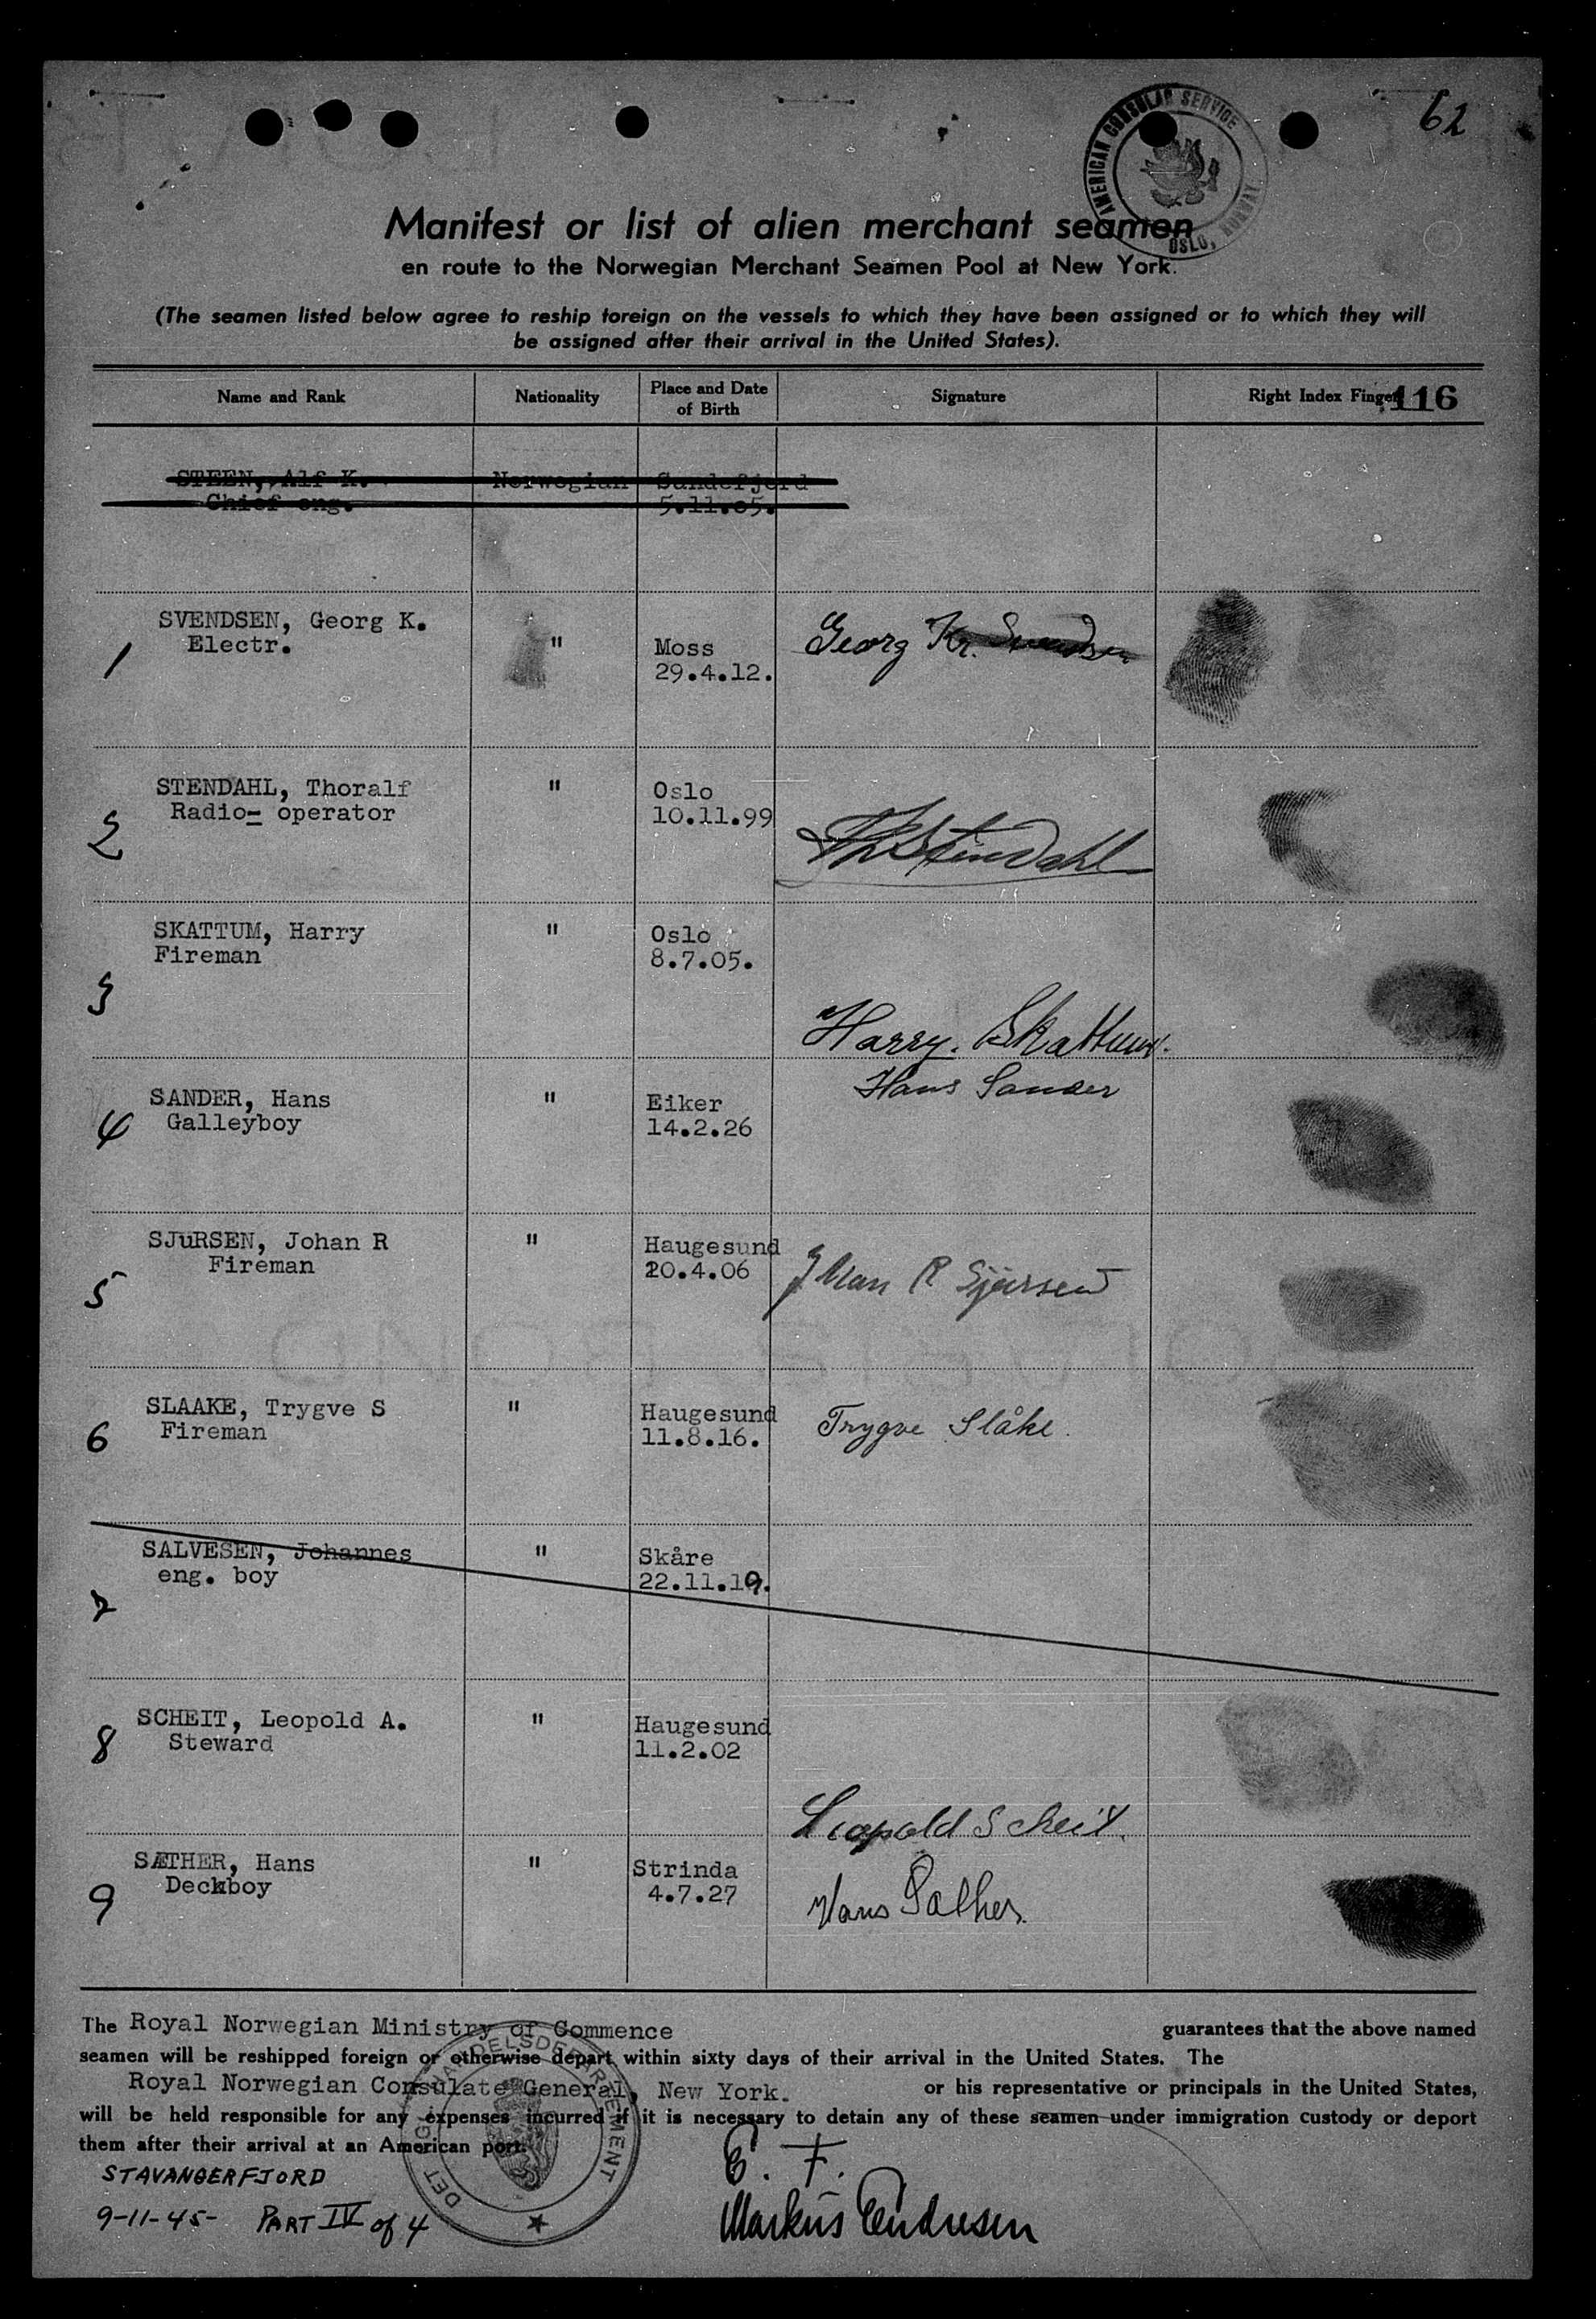 62
AMERICAN CONSULAR SERVICE
OSLO, NORWAY
Manifest or list of alien merchant seamen
en route to the Norwegian Merchant Seamen Pool at New York.
(The seamen listed below agree to reship foreign on the vessels to which they have been assigned or to which they will
be assigned after their arrival in the United States).
Name and Rank Nationality Place and Date of Birth Signature Right Index Finger 116
STEEN, Alf K. Norwegian Sandefjord
Chief eng. 5.11.05.
1 SVENDSEN, Georg K. " Moss Georg Kr. Svendsen
Electr. 29.4.12.
2 STENDAHL, Thoralf " Oslo Th Stendahl
Radio- operator 10.11.99
3 SKATTUM, Harry " Oslo Harry. Skattum.
Fireman 8.7.05.
4 SANDER, Hans " Eiker Hans Sander
Galleyboy 14.2.26
5 SJuRSEN, Johan R " Haugesund Johan R Sjursen
Fireman 20.4.06
6 SLAAKE, Trygve S " Haugesund Trygve Slåke.
Fireman 11.8.16.
7 SALVESEN, Johannes " Skåre
eng. boy 22.11.19.
8 SCHEIT, Leopold A. " Haugesund Leopold Scheit.
Steward 11.2.02
9 SÆTHER, Hans " Strinda Hans Sæther.
Deckboy 4.7.27
The Royal Norwegian Ministry of Commence guarantees that the above named
seamen will be reshipped foreign or otherwise depart within sixty days of their arrival in the United States. The
Royal Norwegian Consulate General, New York. or his representative or principals in the United States,
will be held responsible for any expenses incurred if it is necessary to detain any of these seamen under immigration custody or deport
them after their arrival at an American port.
STAVANGERFJORD
9-11-45- PART IV of 4
E. F.
Markus Endresen